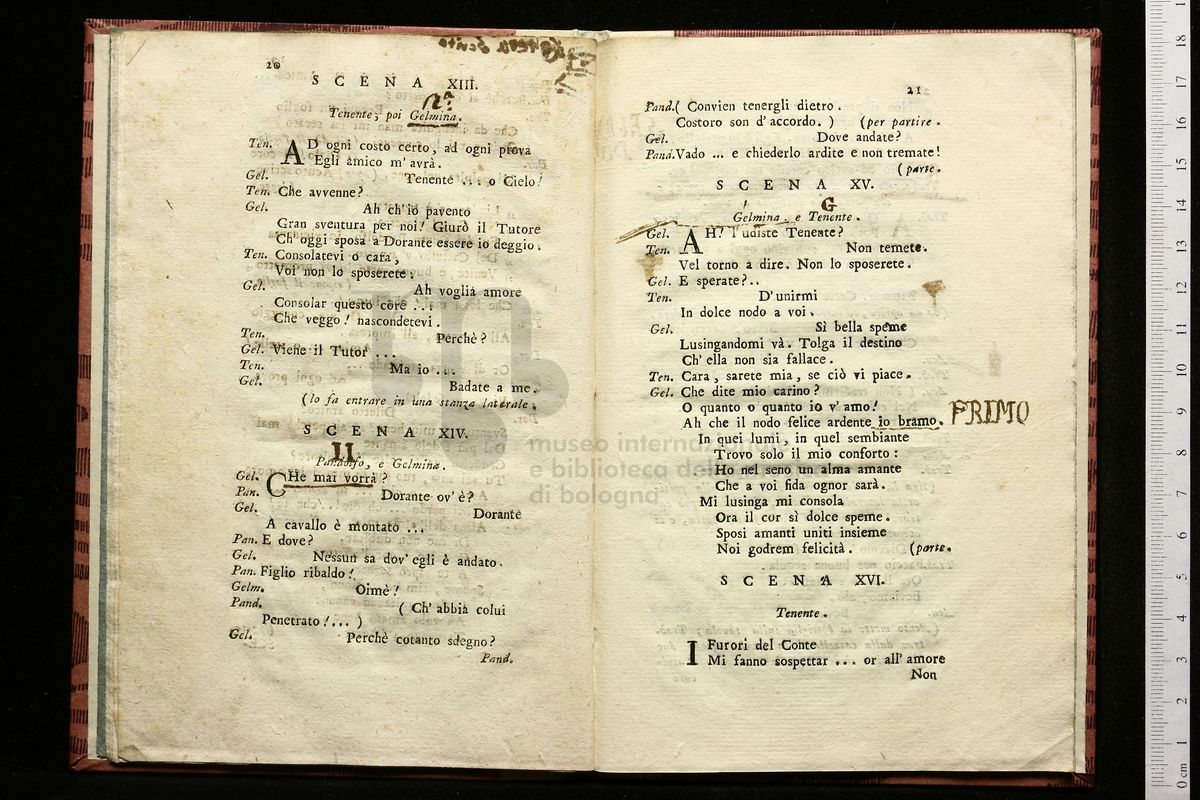 20
SCENA XIII.
Tenente, poi Gelmina.
Ten. AD ogni costo certo, ad ogni prova
Egli amico m' avrà.
Gel. Tenente ... o Cielo!
Ten. Che avvenne?
Gel. Ah ch'io pavento
Gran sventura per noi! Giurò il Tutore
Ch' oggi sposa a Dorante essere io deggio.
Ten. Consolatevi o cara,
Voi non lo sposerete.
Gel. Ah voglia amore
Consolar questo core ...
Che veggo! nascondetevi.
Ten. Perchè?
Gel. Viene il Tutor ...
Ten. Ma io ...
Gel. Badate a me.
(lo fa entrare in una stanza laterale.
SCENA XIV.
II.
Pandolfo, e Gelmina.
Gel. CHe mai vorrà?
Pan. Dorante ov' è?
Gel. Dorante
A cavallo è montato ...
Pan. E dove?
Gel. Nessun sa dov' egli è andato.
Pan. Figlio ribaldo!
Gelm. Oimè!
Pand. (Ch' abbia colui
Penetrato!... )
Gel. Perchè cotanto sdegno?
Pand.
21
Pand. ( Convien tenergli dietro.
Costoro son d' accordo. ) (per partire.
Gel. Dove andate?
Pand. Vado ... e chiederlo ardite e non tremate!
(parte.
SCENA XV.
G
Gelmina, e Tenente.
Gel. AH! l'udiste Tenente?
Ten. Non temete.
Vel torno a dire. Non lo sposerete.
Gel. E sperate?..
Ten. D'unirmi
In dolce nodo a voi.
Gel. Sì bella speme
Lusingandomi và. Tolga il destino
Ch' ella non sia fallace.
Ten. Cara, sarete mia, se ciò vi piace.
Gel. Che dite mio carino?
O quanto o quanto io v' amo!
Ah che il nodo felice ardente io bramo. PRIMO
In quei lumi, in quel sembiante
Trovo solo il mio conforto:
Ho nel seno un alma amante
Che a voi fida ognor sarà.
Mi lusinga mi consola
Ora il cor sì dolce speme.
Sposi amanti uniti insieme
Noi godrem felicità. (parte.
SCENA XVI.
Tenente.
I Furori del Conte
Mi fanno sospettar ... or all' amore
Non
museo internazionale
e biblioteca della
di bologna